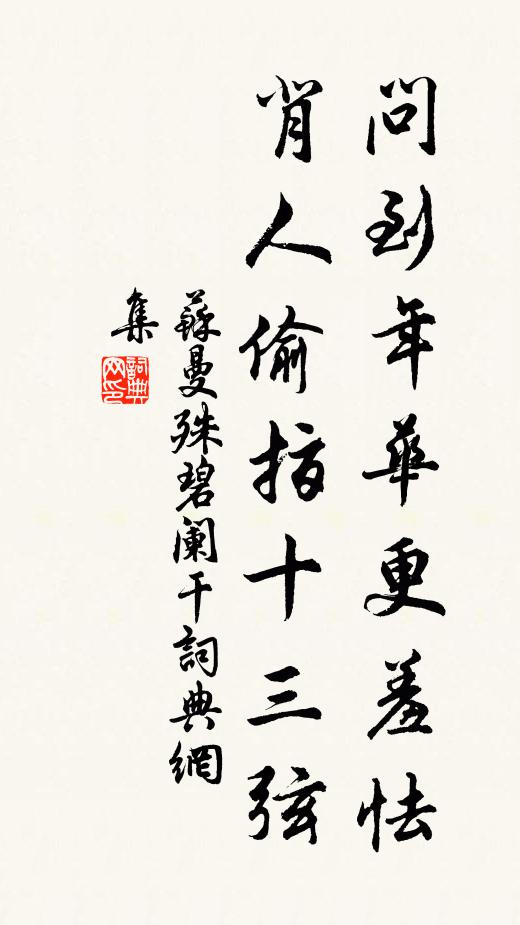 問到年華更羞怯
背人偷指十三弦
蘇曼殊碧闌干詞典網
集
詞典网印